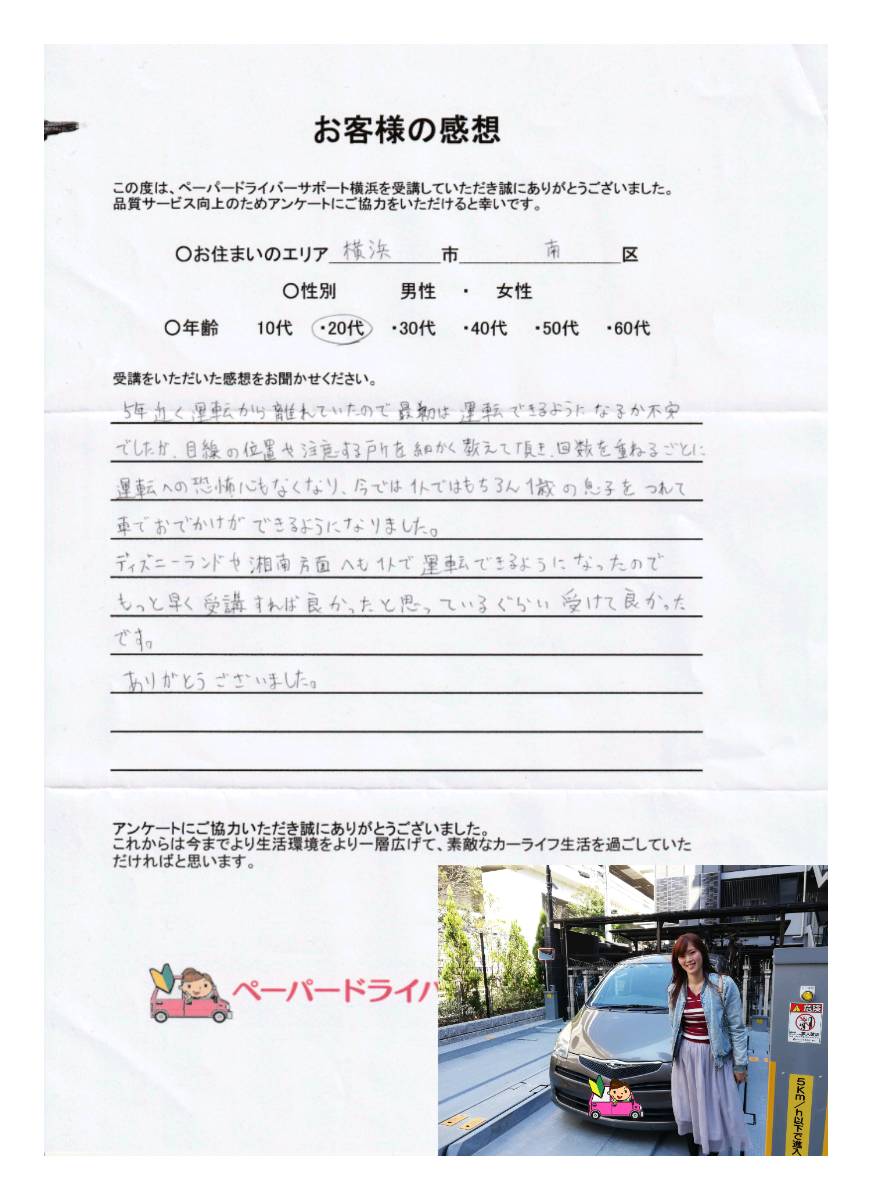 お客様の感想
この度は、ペーパードライバーサポート横浜を受講していただき誠にありがとうございました。
品質サービス向上のためアンケートにご協力をいただけると幸いです。
○お住まいのエリア 横浜 市 南 区
○性別 男性 ・ 女性
○年齢 10代 ・20代 ・30代 ・40代 ・50代 ・60代
受講をいただいた感想をお聞かせください。
5年近く運転から離れていたので最初は運転できるようになるか不安
でしたが、目線の位置や注意する所を細かく教えて頂き、回数を重ねるごとに
運転への恐怖心もなくなり、今では1人ではもちろん1歳の息子をつれて
車でおでかけができるようになりました。
ディズニーランドや湘南方面へも1人で運転できるようになったので
もっと早く受講すれば良かったと思っているぐらい受けて良かった
です。
ありがとうございました。
アンケートにご協力いただき誠にありがとうございました。
これからは今までより生活環境をより一層広げて、素敵なカーライフ生活を過ごしていた
だければと思います。
ペーパードライバ
危険
5km/h以下で進入